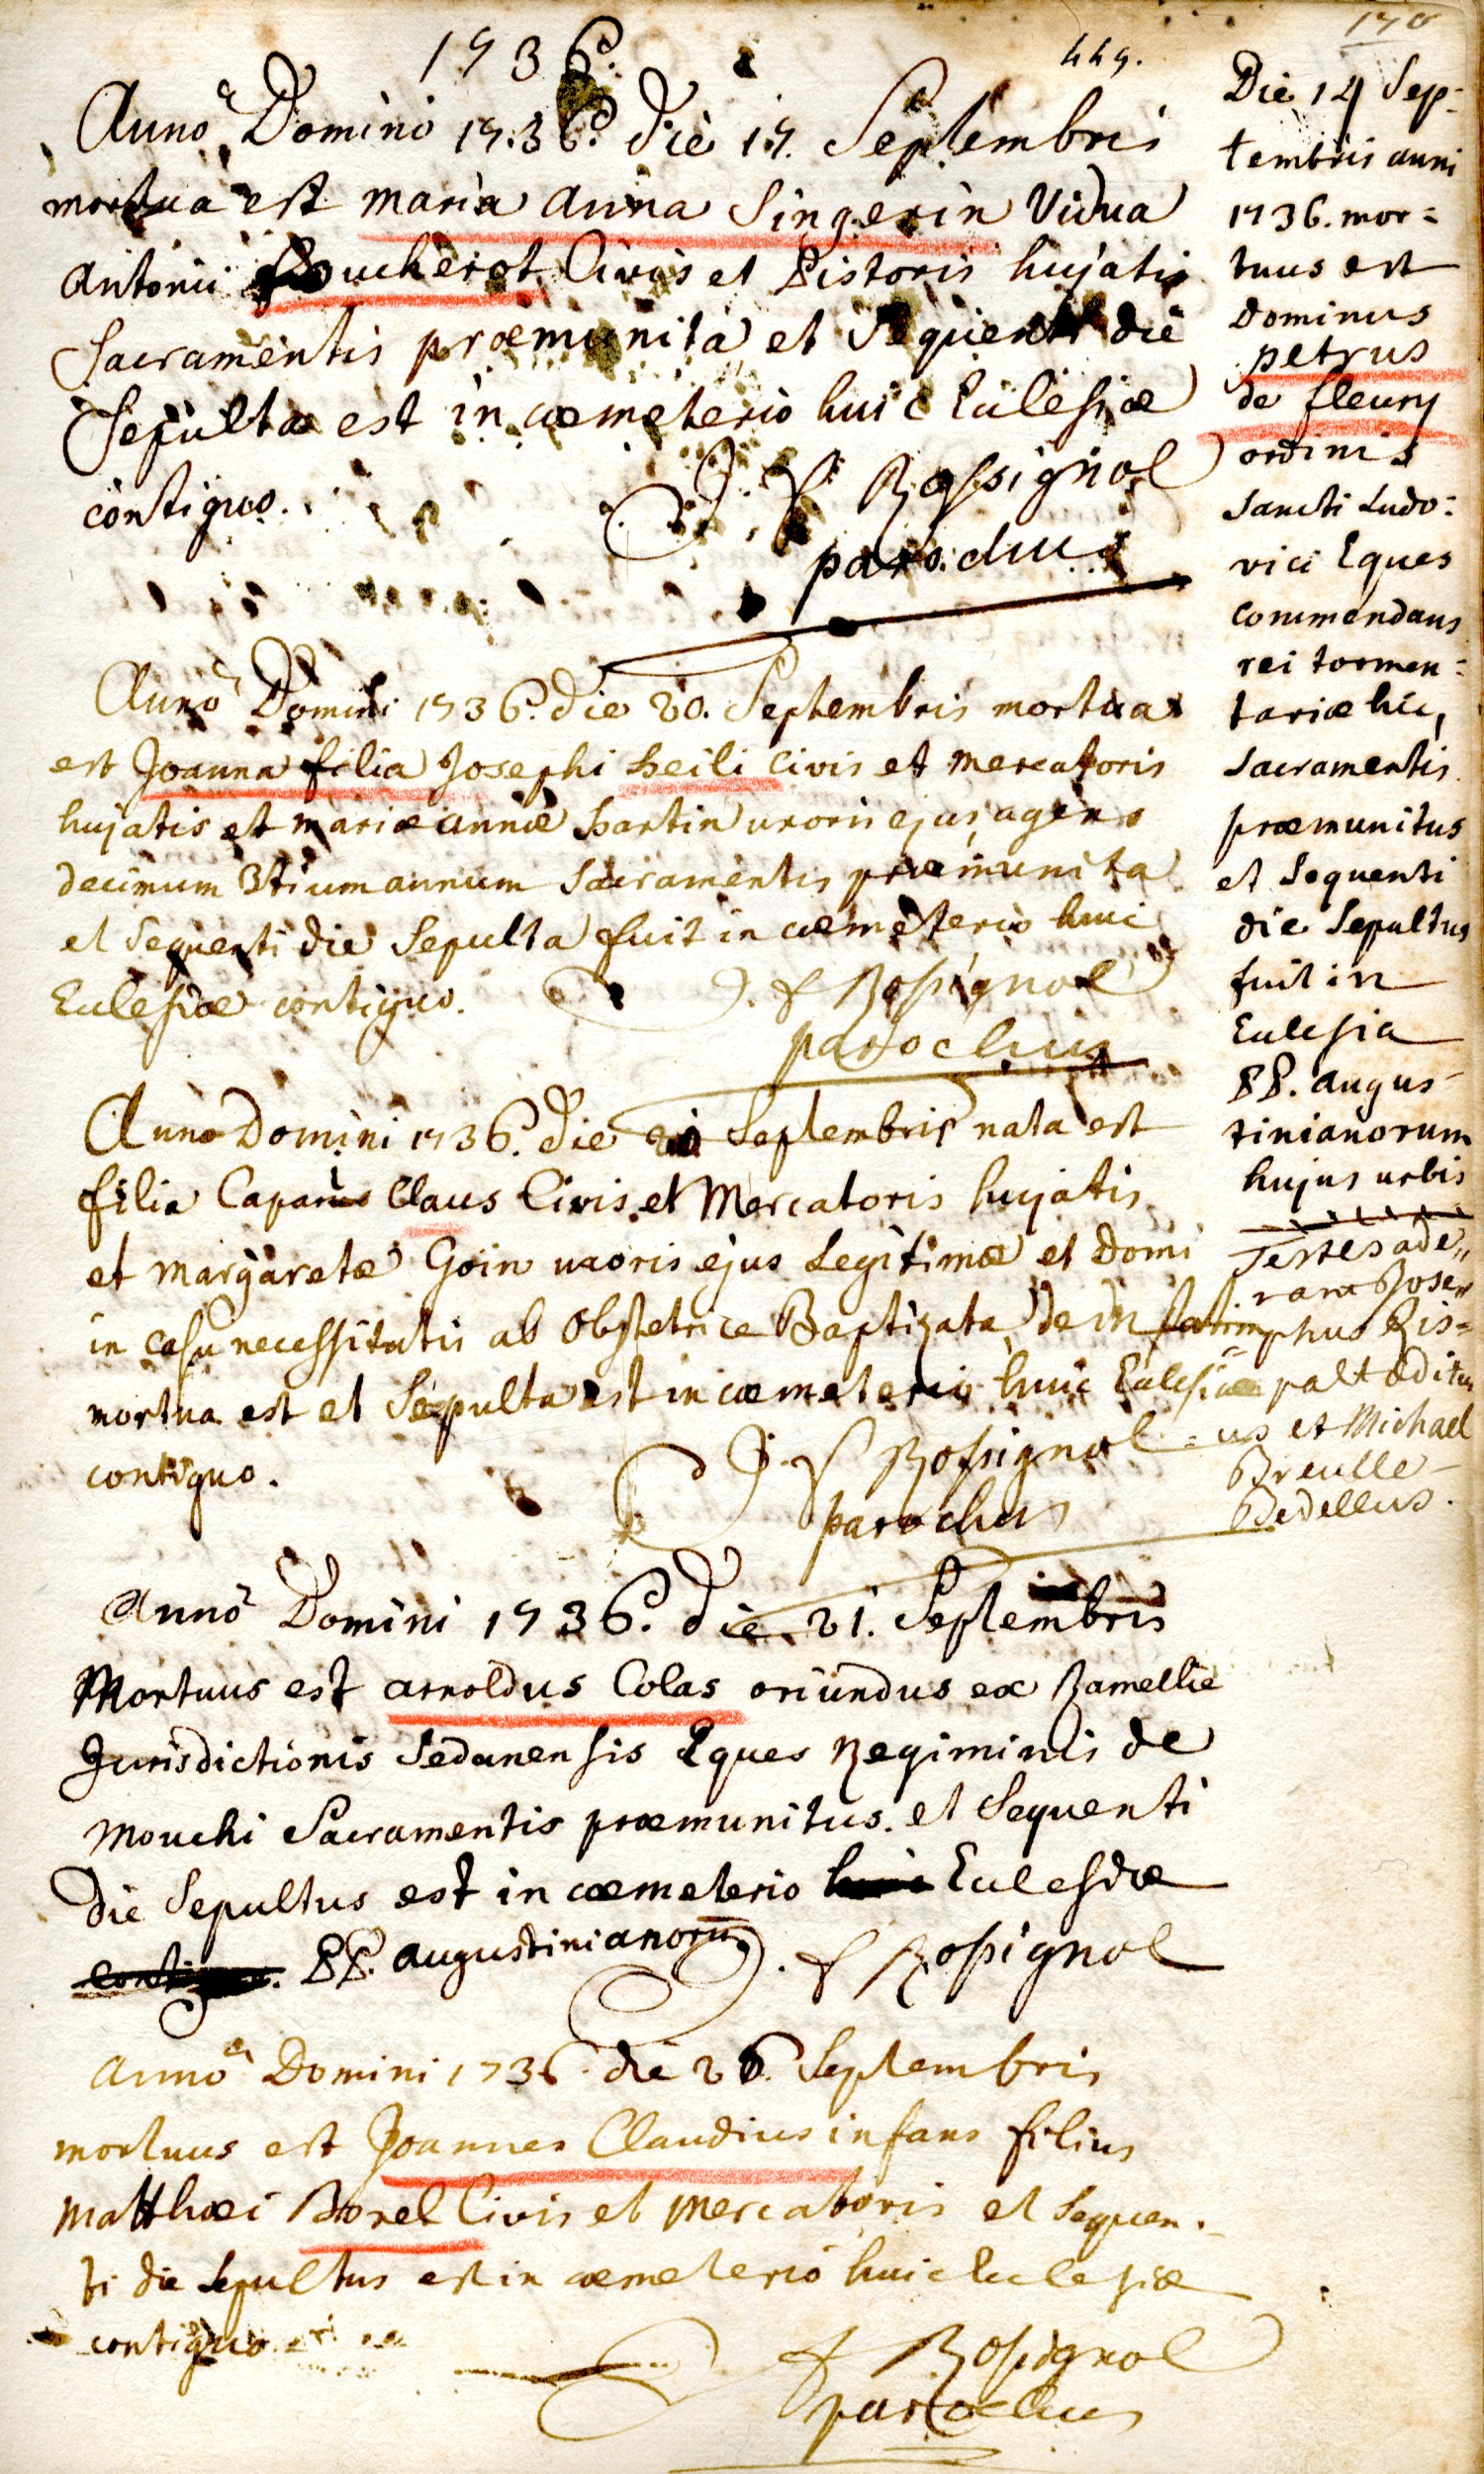 1736.
449.
Anno Domini 1736. die 17. Septembris
mortua est maria anna Singerin Vidua
antonii Boucherot Civis et Pistoris hujatis
Sacramentis præmunita et Sequenti die
Sepulta est in cæmeterio huic Ecclesiæ
contiguo.
J. f Rossignol
parochus
Anno Domini 1736. die 20. Septembris mortua
est Joanna filia Josephi heili Civis et mercatoris
hujatis et mariæ annæ hartin uxoris ejus, agens
decimum 3tium annum Sacramentis præmunita
et Sequenti die Sepulta fuit in cæmeterio huic
Ecclesiæ contiguo.
J. f Rossignol
parochus
Anno Domini 1736. die Septembris nata est
filia Claus Civis et Mercatoris hujatis
et margaretæ Goin uxoris ejus Legitimæ et Domi
in casu necessitatis ab Obstetrice Baptizata, de in statim
mortua est et Sepulta est in cæmeterio huic Ecclesiæ
contiguo.
J. f Rossignol
parochus
Anno Domini 1736. die 21. Septembris
Mortuus est arnoldus Colas oriundus ex Ramellie
Jurisdictionis Sedanensis Eques Regiminis de
Mouchi Sacramentis præmunitus. et Sequenti
die Sepultus est in cæmeterio huic Ecclesiæ
PP. augustinianoru
J. f Rossignol
Anno Domini 1736. die 26. Septembris
mortuus est Joannes Claudius infans filius
Matthæi Borel Civis et mercatoris et Sequen-
ti die Sepultus est in cæmeterio huic Ecclesiæ
contiguo
f Rossignol
parochus
Die 14 Sep-
tembris anni
1736. mor=
tuus est
Dominus
petrus
de fleury
ordinis
Sancti Ludo=
vici Eques
Commendans
rei tormen=
tariæ hic,
Sacramentis
præmunitus
et Sequenti
die Sepultus
fuit in
Ecclesia
PP. augus-
tinianorum
hujus urbis
Testes ade,,
rant Jose,,
phus Ris=
palt æditu
=us et Michael
Breulle
Bedellus.